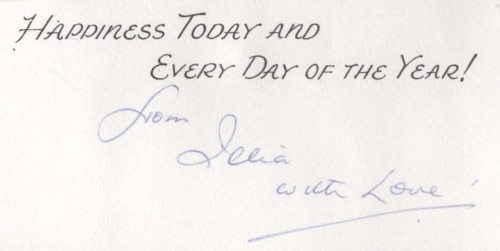 Happiness Today and
Every Day of the Year!
from
Illia
with Love!